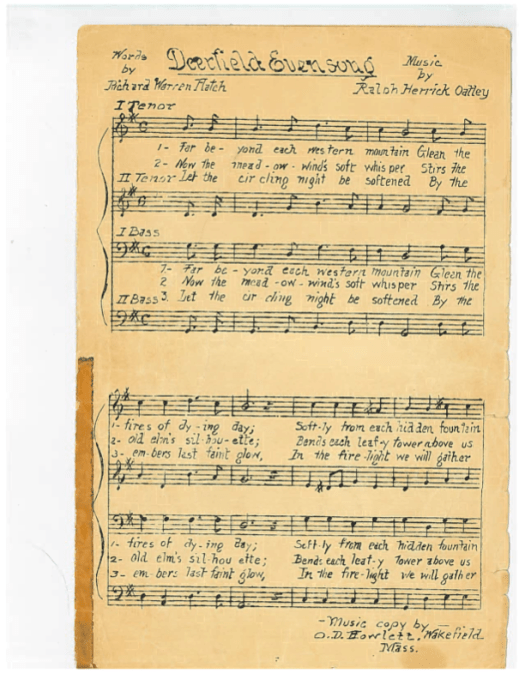 Words
by
Richard Warren Hatch
Deerfield Evensong
Music
by
Ralph Herrick Oatley
I Tenor
1- Far be - yond each western mountain Gleam the
2- Now the mead - ow - wind's soft whisper Stirs the
II Tenor Let the cir cling night be softened By the
I Bass
1- Far be - yond each western mountain Gleam the
2 Now the mead - ow - wind's soft whisper Stirs the
II Bass 3. Let the cir cling night be softened By the
1- fires of dy - ing day; Soft - ly from each hidden fountain
2- old elm's sil - hou - ette; Bends each leaf - y tower above us
3- em - bers last faint glow, In the fire - light we will gather
1- fires of dy - ing day; Soft - ly from each hidden fountain
2- old elm's sil - hou ette; Bends each leaf - y tower above us
3- em - bers last faint glow, In the fire - light we will gather
- Music copy by -
O. D. Howlett, Wakefield
Mass.